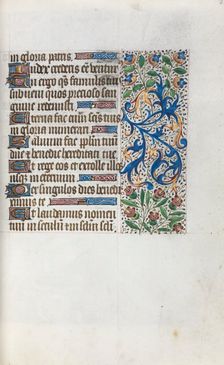 in gloria patris.
Iudex crederis eē ventur
Te ergo q̄s famulis tuis
subueni quos precioso san
guine redemisti
Eterna fac cum sāis tuis
in gloria munerari.
Saluum fac pplm tuū
dn̄e et benedic hereditati tue
Et rege eos et extolle illos
usq̄ in eternum
Per singulos dies benedi
cimus te
Et laudamus nomen
tuū in seculū et in sclm scli.